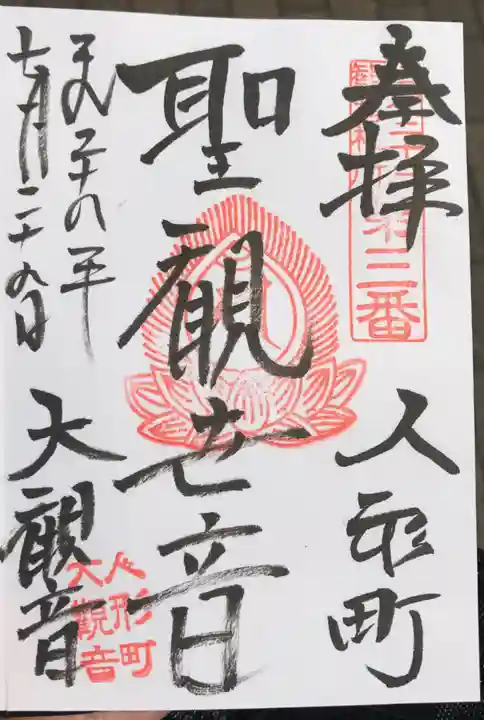 奉拝
人形町
聖観世音
平成二十八年
七月二十九日
大観音
第三番
人形町
大観音